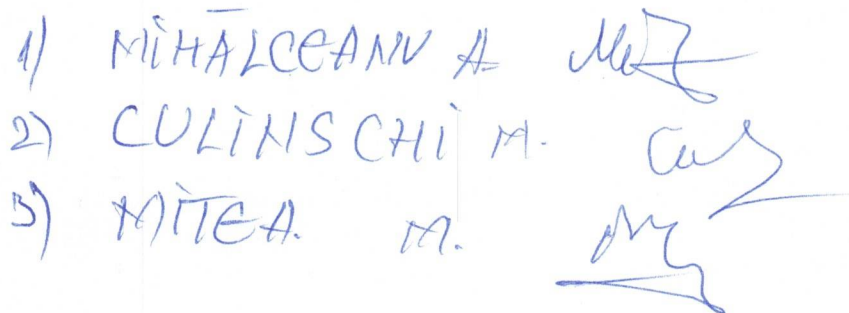 1) MIHĂLCEANU A.
2) CULINSCHI M.
3) MITEA. M.